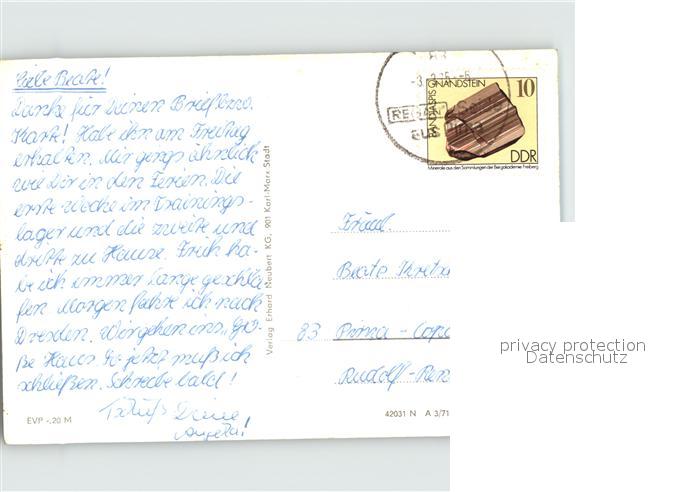 Liebe Beate!
Danke für Deinen Brief bzw.
Karte! Habe ihn am Freitag
erhalten. Mir gings ähnlich
wie Dir in den Ferien. Die
erste Woche im Trainings-
lager und die zweite und
dritte zu Hause. Früh ha-
be ich immer lange geschla-
fen. Morgen fahre ich nach
Dresden. Wir gehen ins „Gro-
ße Haus". So jetzt muß ich
schließen. Schreibe bald!
Tschüß Deine
Angela!
EVP -,20 M
Verlag Erhard Neubert KG, 901 Karl-Marx-Stadt
BANDJASPIS
GNANDSTEIN
10
DDR
Minerale aus den Sammlungen der Bergakademie Freiberg
Fräul.
Beate
83 Pirna - Cop
Rudolf-Ren
42031 N A 3/71
privacy protection
Datenschutz